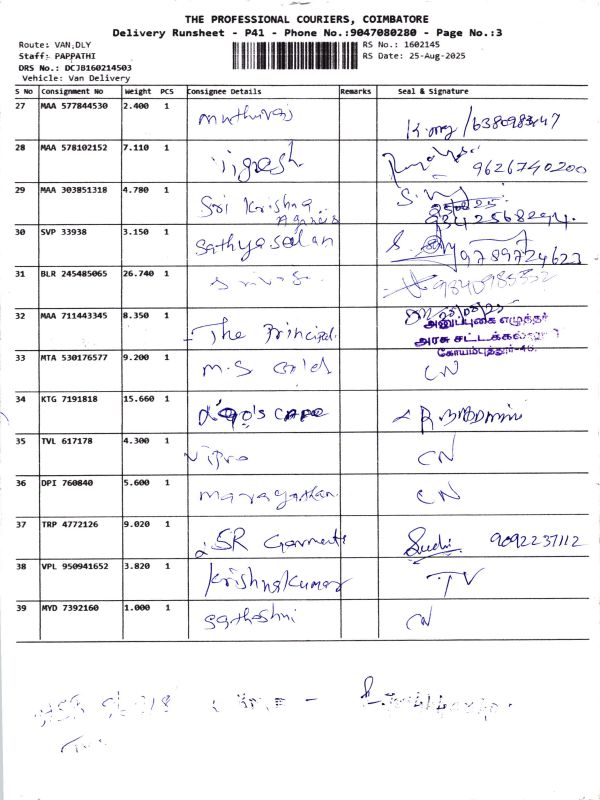 THE PROFESSIONAL COURIERS, COIMBATORE
Delivery Runsheet - P41 - Phone No.:9047080280 - Page No.:3
Route: VAN,DLY RS No.: 1602145
Staff: PAPPATHI RS Date: 25-Aug-2025
DRS No.: DCJB160214503
Vehicle: Van Delivery
S No Consignment No Weight PCS Consignee Details Remarks Seal & Signature
27 MAA 577844530 2.400 1 muthuraj
28 MAA 578102152 7.110 1 Jigresh 9626740200
29 MAA 303851318 4.780 1 Sri Krishna
30 SVP 33938 3.150 1 Sathyaseelan 9789724623
31 BLR 245485065 26.740 1 9840985352
32 MAA 711443345 8.350 1 The Principal
அனுப்புகை எழுத்தர்
கோயம்புத்தூர்-46.
33 MTA 530176577 9.200 1 M.S Gold CN
34 KTG 7191818 15.660 1
35 TVL 617178 4.300 1 Vipro CN
36 DPI 760840 5.600 1 CN
37 TRP 4772126 9.020 1 SR Garments Sudhi 9092237112
38 VPL 950941652 3.820 1 Krishnakumar TV
39 MYD 7392160 1.000 1 CN